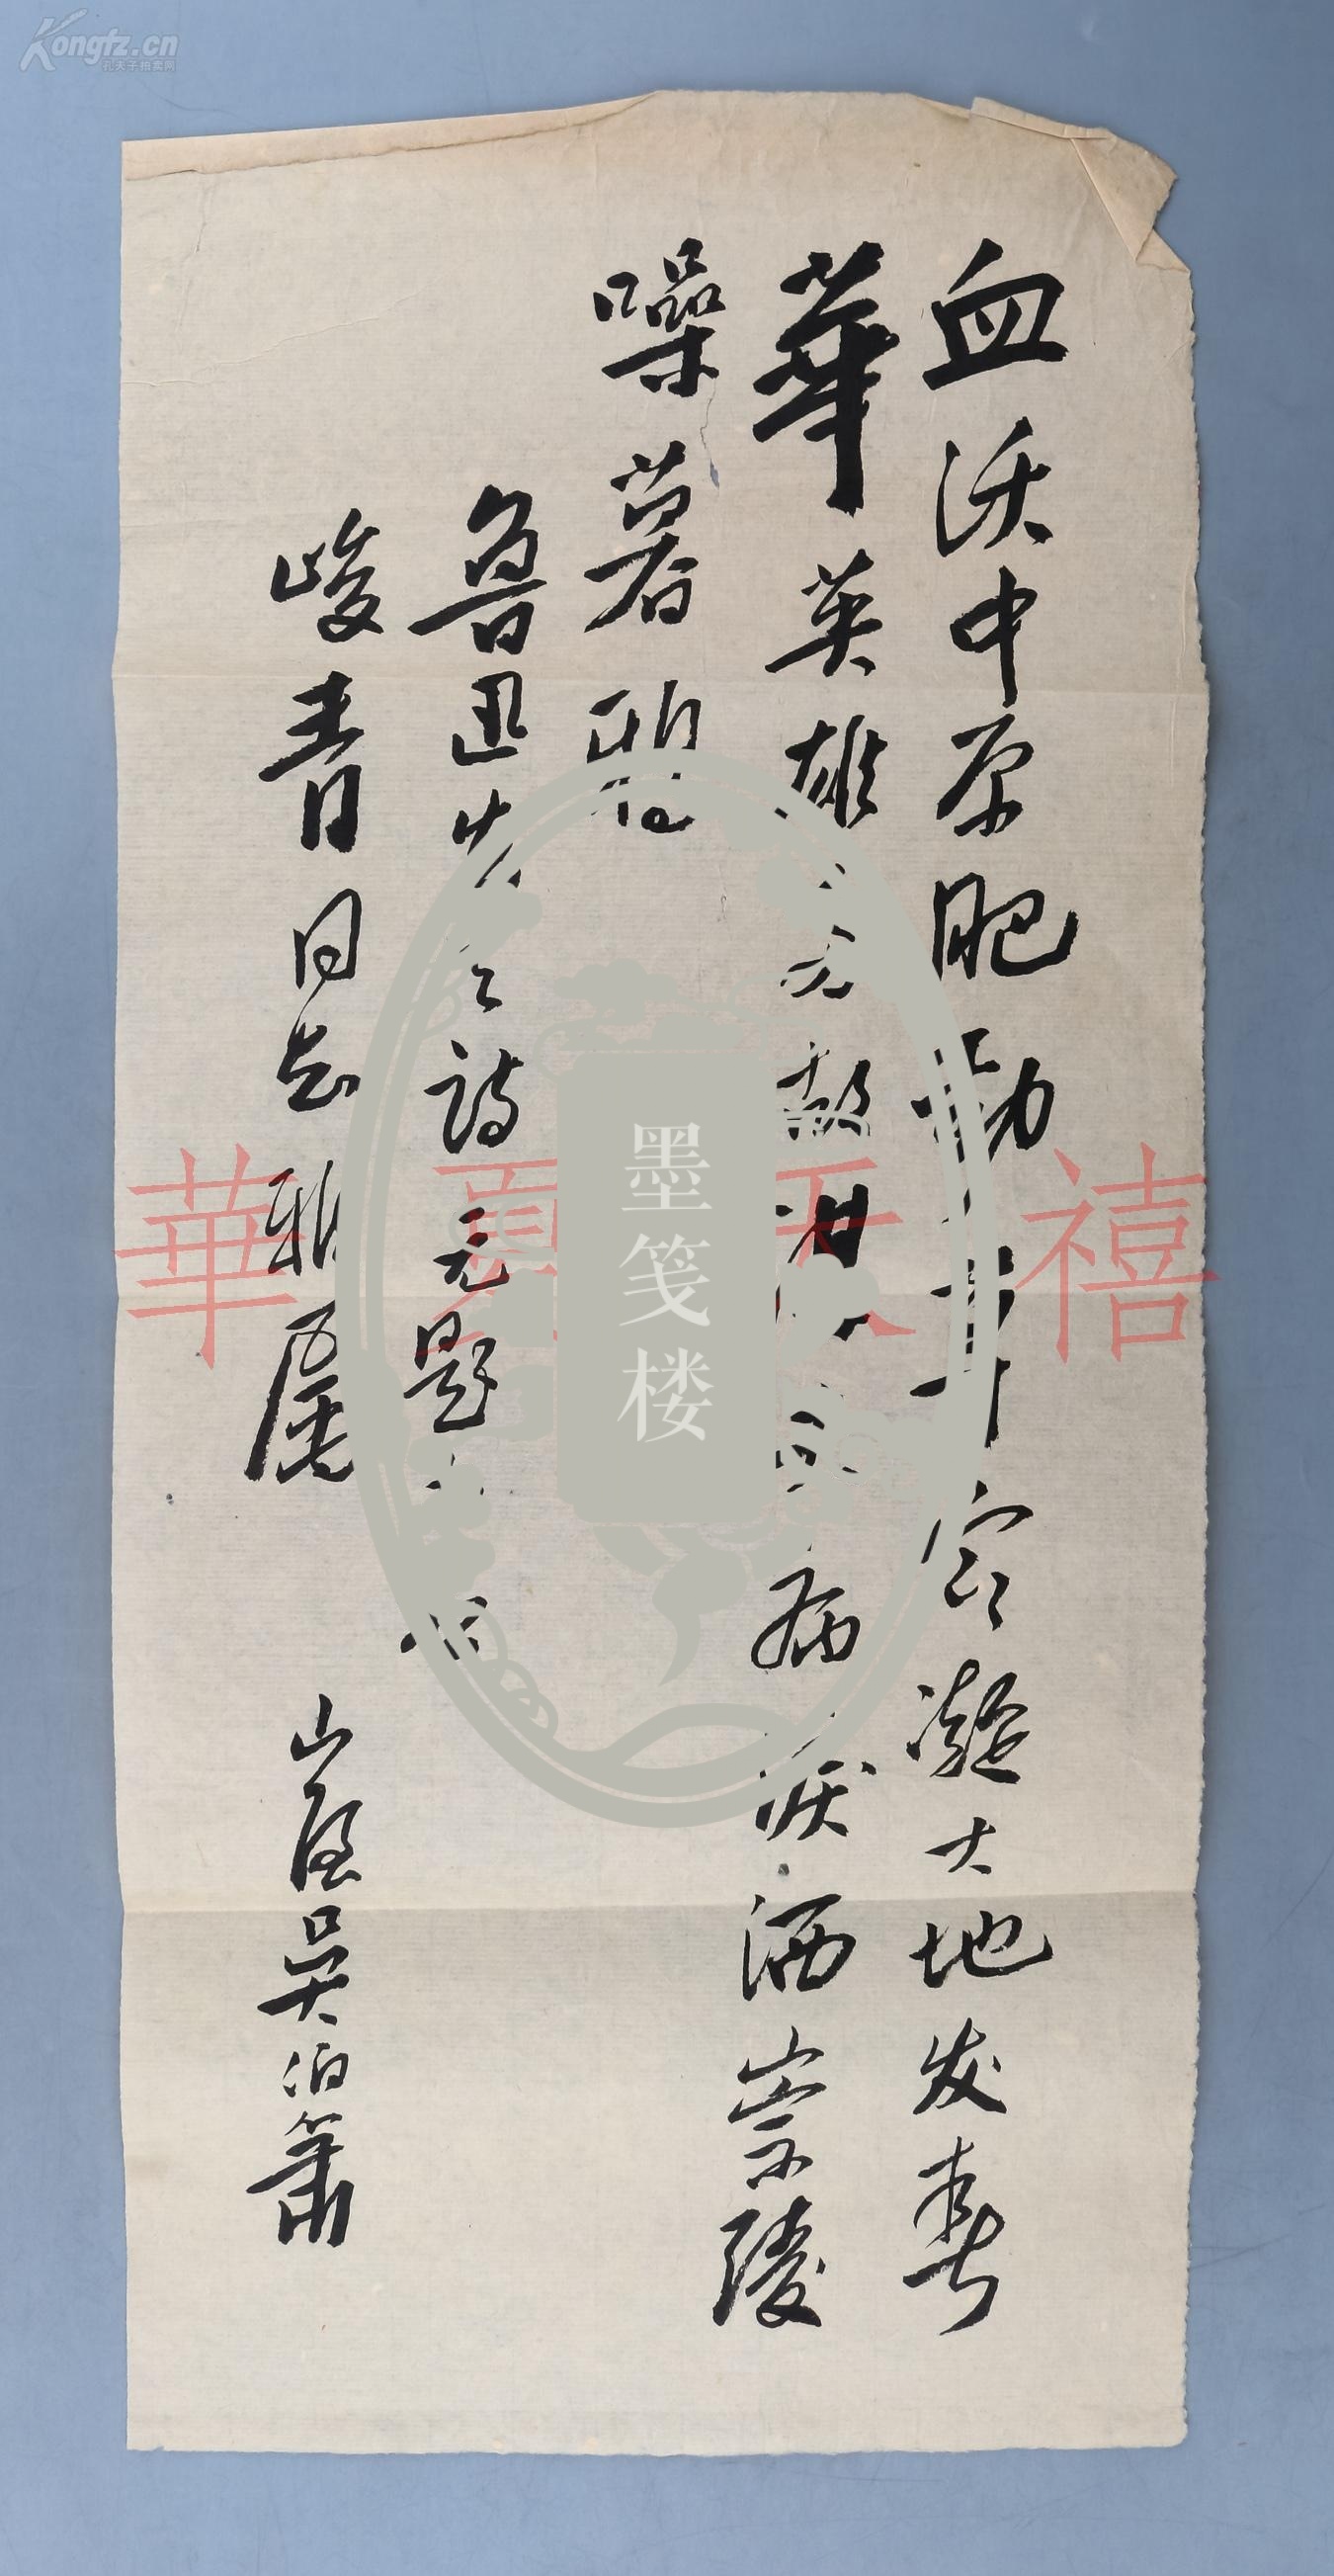 血沃中原肥劲草寒凝大地发春
華英雄多故謀夫病淚洒崇陵
噪暮鸦
鲁迅先生诗无题
峻青同志雅属
山屋吴伯箫
墨笺楼
華夏天禧
Kongfz.cn
孔夫子拍卖网